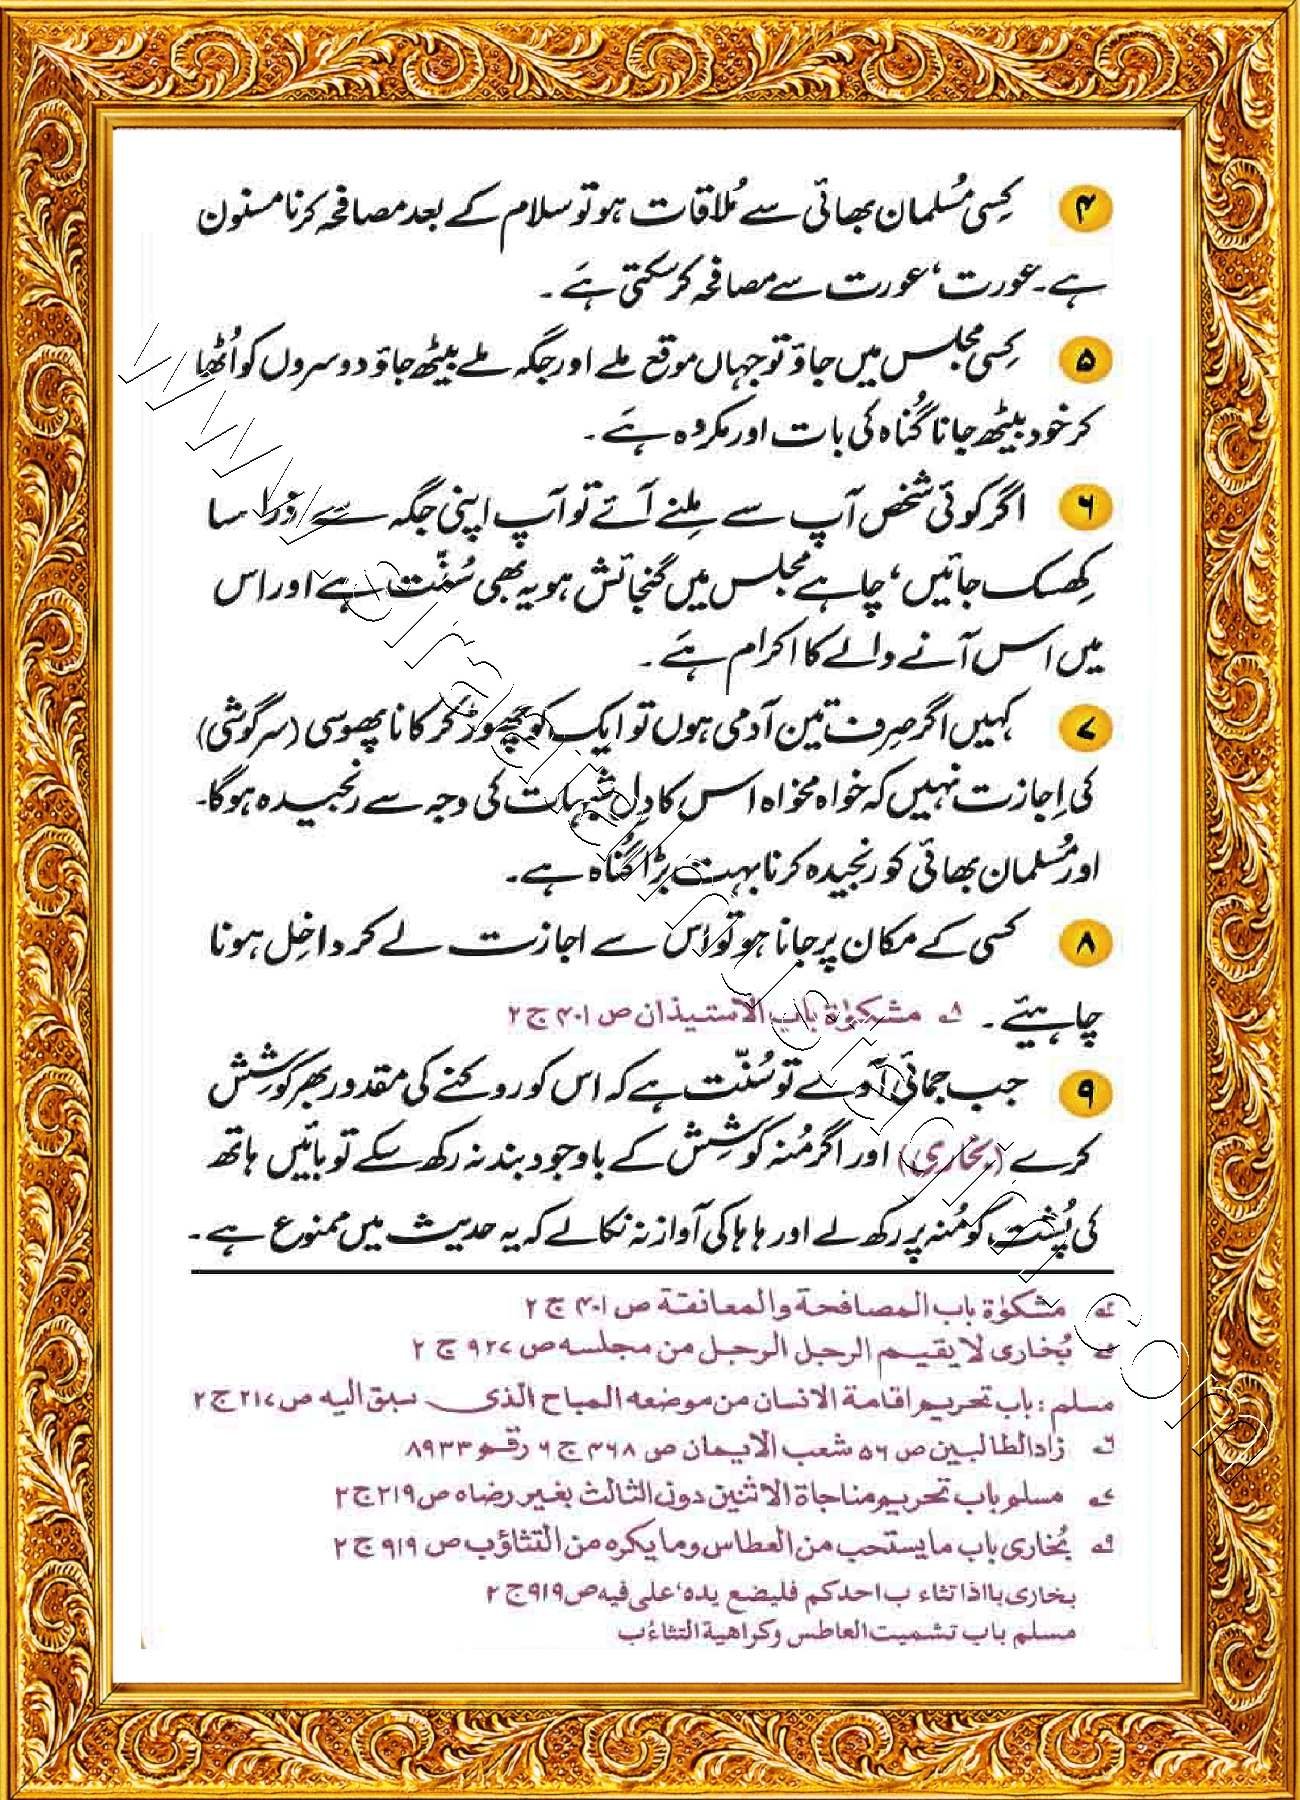 ۴ کِسی مُسلمان بھائی سے مُلاقات ہو تو سلام کے بعد مصافحہ کرنا مسنون
ہے۔ عورت، عورت سے مصافحہ کر سکتی ہَے۔
۵ کِسی مجلس میں جاؤ تو جہاں موقع ملے اور جگہ ملے بیٹھ جاؤ دوسروں کو اُٹھا
کر خود بیٹھ جانا گُناہ کی بات اور مکروہ ہَے۔
۶ اگر کوئی شخص آپ سے مِلنے آئے تو آپ اپنی جگہ سے ذرا سا
کِھسک جائیں، چاہے مجلس میں گنجائش ہو یہ بھی سُنّت ہے اور اس
میں اس آنے والے کا اکرام ہَے۔
۷ کہیں اگر صِرف تین آدمی ہوں تو ایک کو چھوڑ کر کانا پھوسی (سرگوشی)
کی اِجازت نہیں کہ خواہ مخواہ اس کا دِل شبہات کی وجہ سے رنجیدہ ہوگا۔
اور مُسلمان بھائی کو رنجیدہ کرنا بہت بڑا گُناہ ہے۔
۸ کسی کے مکان پر جانا ہو تو اس سے اجازت لے کر داخِل ہونا
چاہیئے۔ ۸؎ مشکوٰة باب الاستیذان ص ۴۰۱ ج ۲
۹ جب جمائی آوے تو سُنّت ہے کہ اس کو روکنے کی مقدور بھر کوشِش
کرے (بخاری) اور اگر مُنہ کوشِش کے باوجود بند نہ رکھ سکے تو بائیں ہاتھ
کی پُشت کو مُنہ پر رکھ لے اور ہا ہا کی آواز نہ نکالے کہ یہ حدیث میں ممنوع ہے۔
۴؎ مشکوٰة باب المصافحة والمعانقة ص ۴۰۱ ج ۲
۵؎ بُخاری لا یقیم الرجل الرجل من مجلسه ص ۹۲۷ ج ۲
مسلم: باب تحریم اقامة الانسان من موضعه المباح الذی سبق الیه ص ۲۱۷ ج ۲
۶؎ زاد الطالبین ص ۵۶ شعب الایمان ص ۴۶۸ ج ۶ رقم ۸۹۳۳
۷؎ مسلم باب تحریم مناجاة الاثنین دون الثالث بغیر رضاه ص ۲۱۹ ج ۲
۹؎ بُخاری باب ما یستحب من العطاس وما یکره من التثاؤب ص ۹۱۹ ج ۲
بخاری با اذا تثاء ب احدکم فلیضع یده، علی فیه ص ۹۱۹ ج ۲
مسلم باب تشمیت العاطس وکراهیة التثاءب